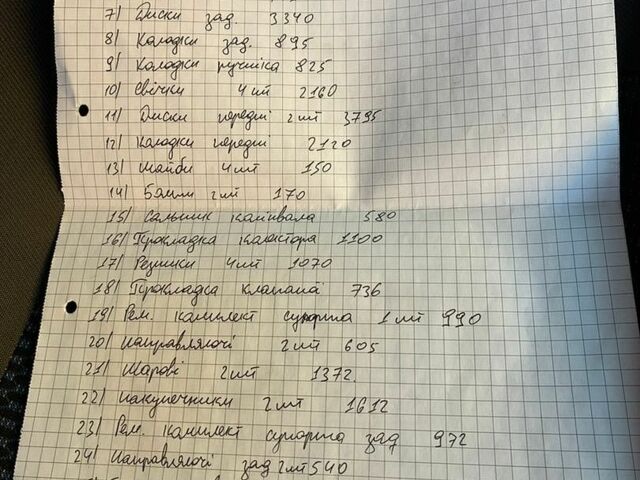 7) Диски зад. 3340
8) Колодки зад. 895
9) Колодки ручніка 825
10) Свічки 4 шт 2160
11) Диски передні 2 шт 3795
12) Колодки передні 2120
13) Шайби 4 шт 150
14) 2 шт 170
15) Сальник колінвала 580
16) Прокладка колектора 1100
17) Резинки 4 шт 1070
18) Прокладка клапана 736
19) Рем. комплект супорта 1 шт 990
20) Направляючі 2 шт 605
21) Шарові 2 шт 1372.
22) Накунечники 2 шт 1612
23) Рем. комплект супорта зад 972
24) Направляючі зад 2 шт 540